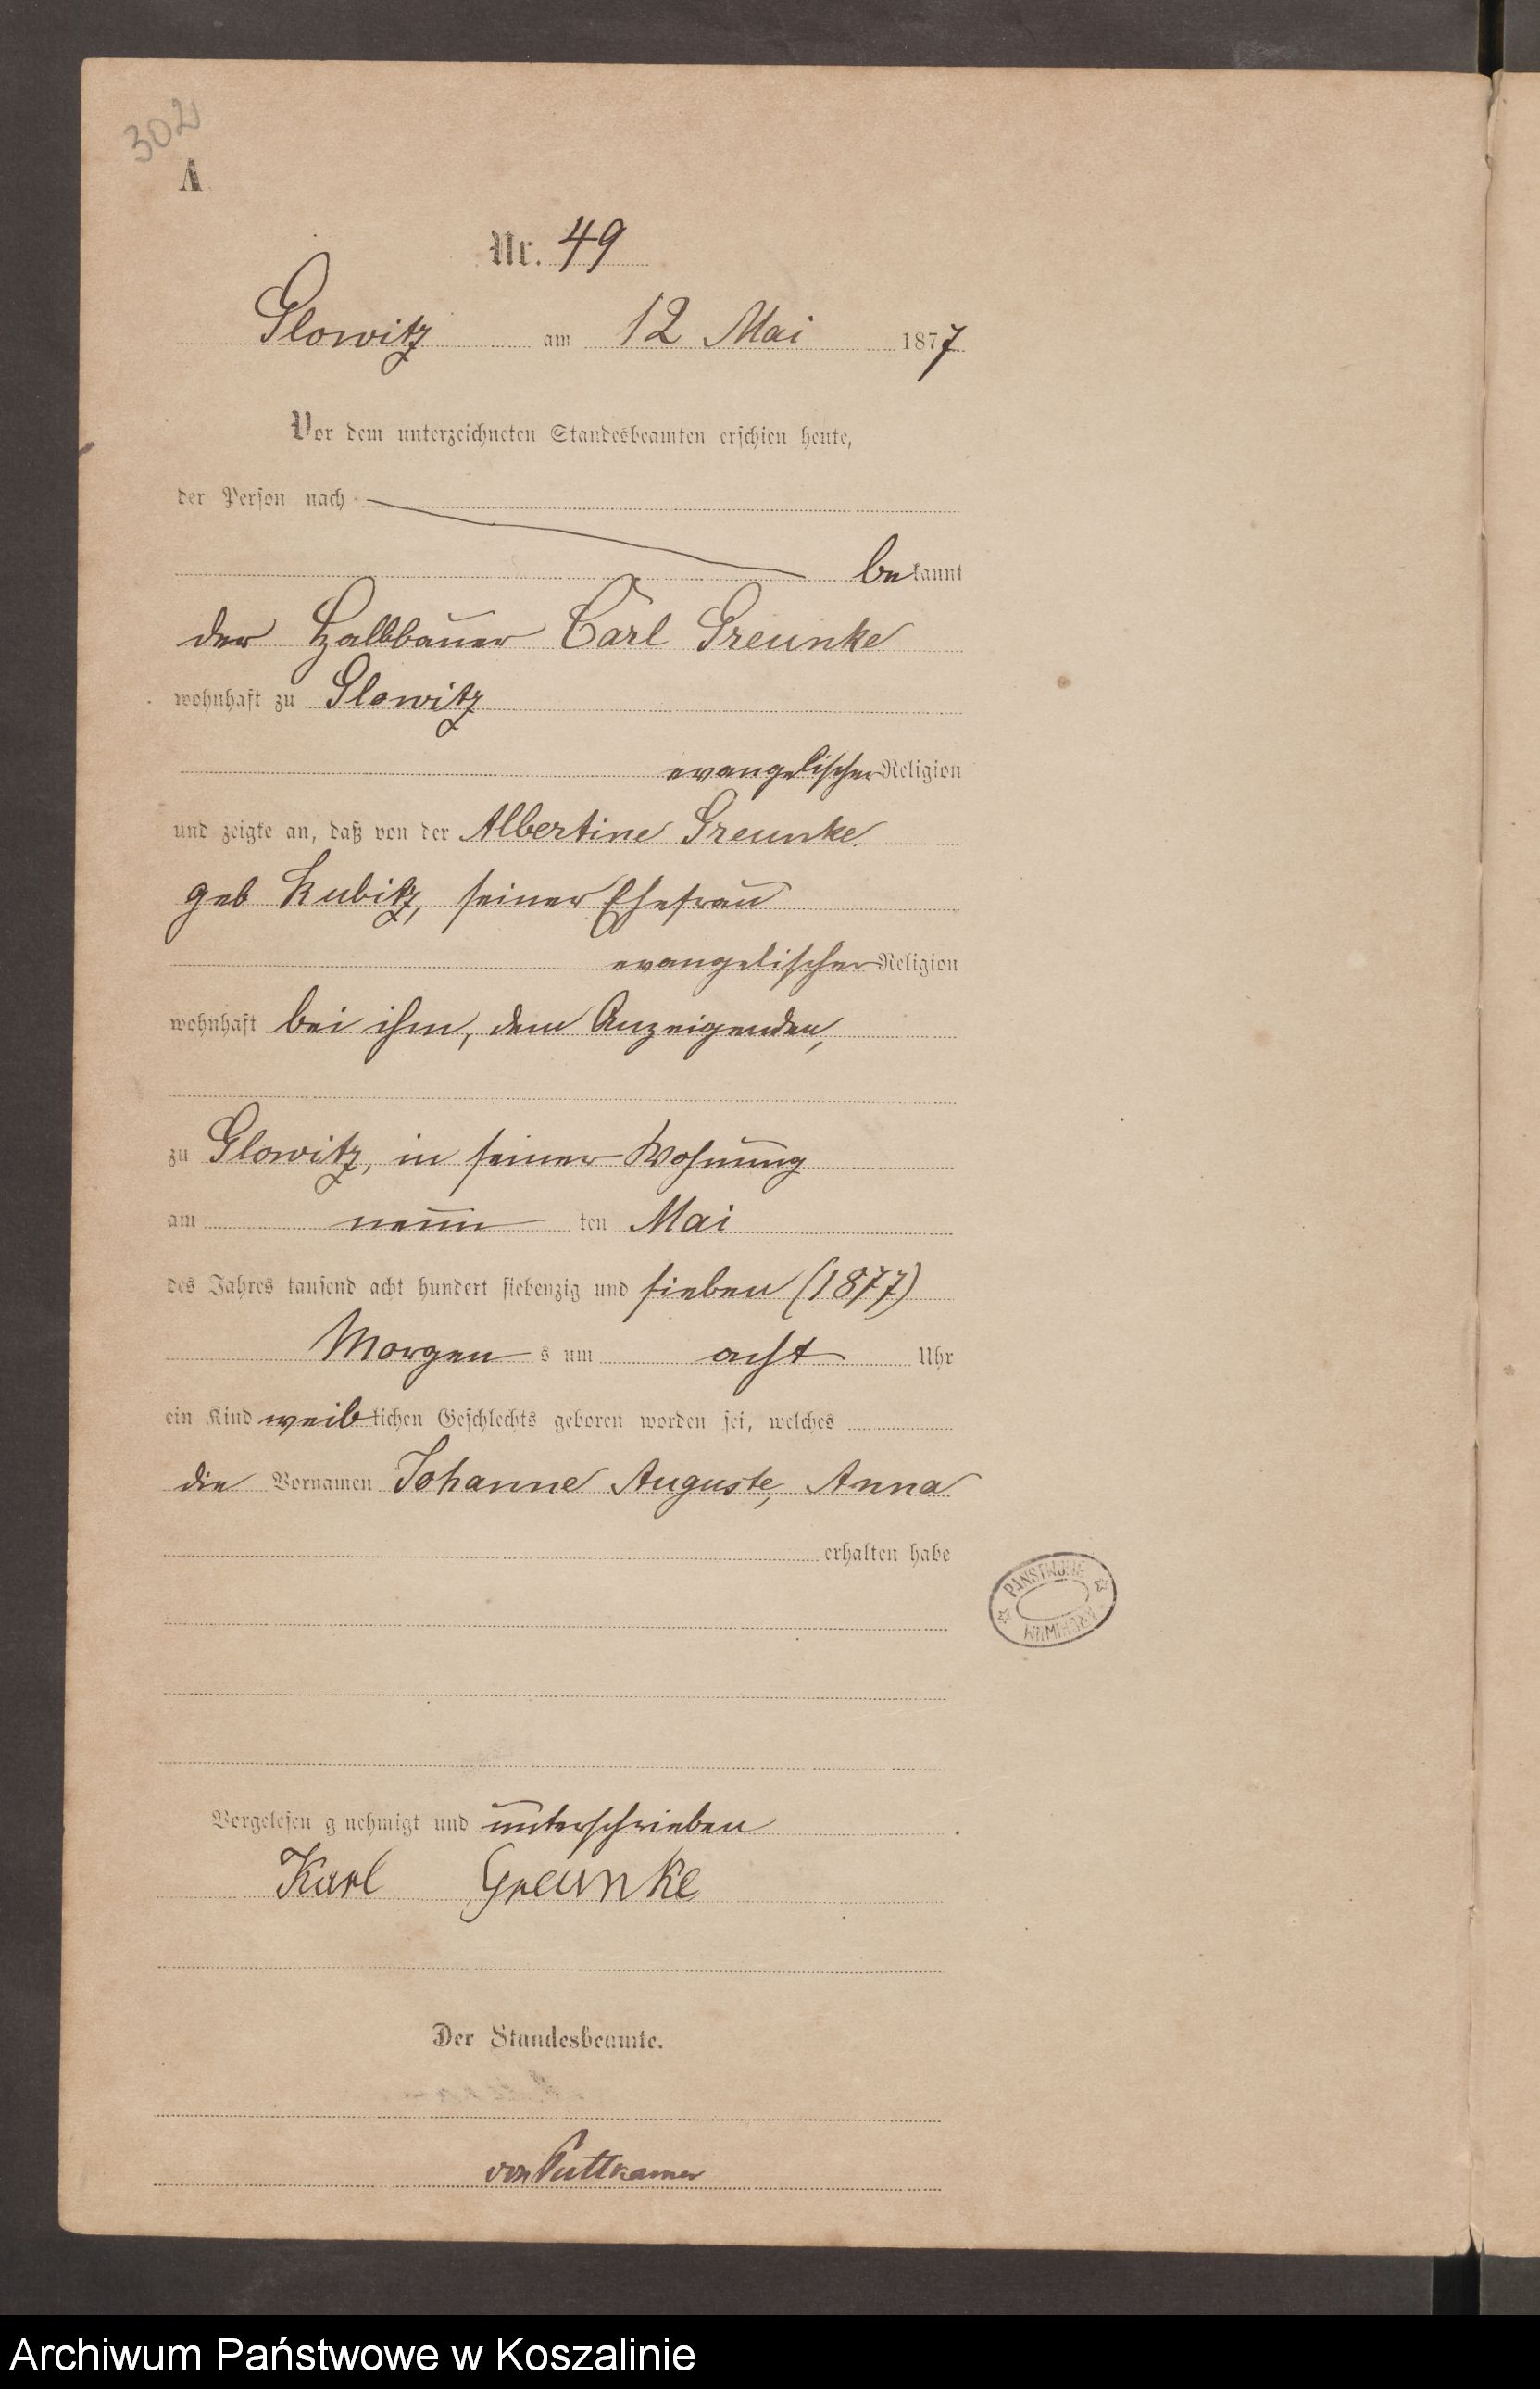 302
A
Nr. 49
Glowitz am 12 Mai 1877
Vor dem unterzeichneten Standesbeamten erschien heute,
der Person nach
bekannt
der Halbbauer Carl Greunke
wohnhaft zu Glowitz
evangelischer Religion
und zeigte an, daß von der Albertine Greunke
geb Kubitz, seiner Ehefrau
evangelischer Religion
wohnhaft bei ihm, dem Anzeigenden,
zu Glowitz, in seiner Wohnung
am neun ten Mai
des Jahres tausend acht hundert siebenzig und sieben (1877)
Morgen s um acht Uhr
ein Kind weiblichen Geschlechts geboren worden sei, welches
die Vornamen Johanne Auguste, Anna
erhalten habe
PAŃSTWOWE ARCHIWUM
Vorgelesen g nehmigt und unterschrieben
Karl Greunke
Der Standesbeamte.
von Puttkamer
Archiwum Państwowe w Koszalinie